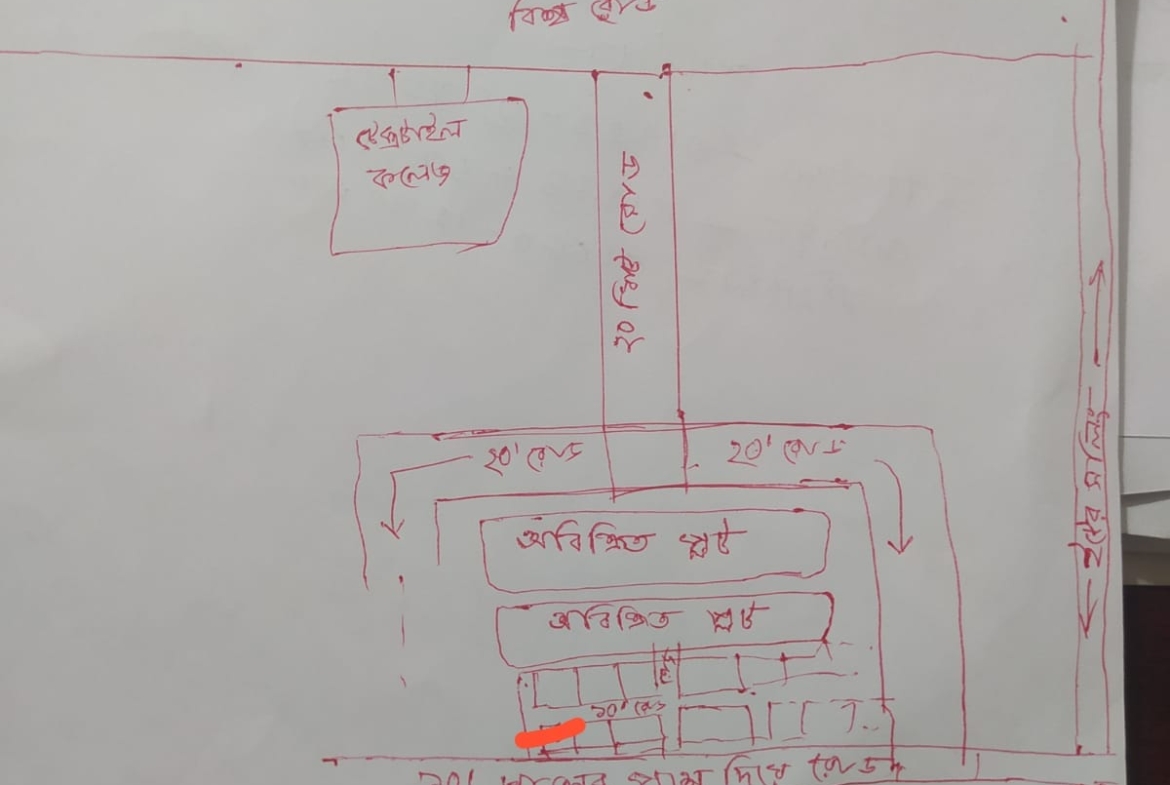 বিশ্ব রোড
টেক্সটাইল
কলেজ
২০ ফিট রোড
২০' রোড
২০' রোড
অবিক্রিত প্লট
অবিক্রিত প্লট
১০' রোড
ইটের সলিং
পাশ দিয়ে রোড